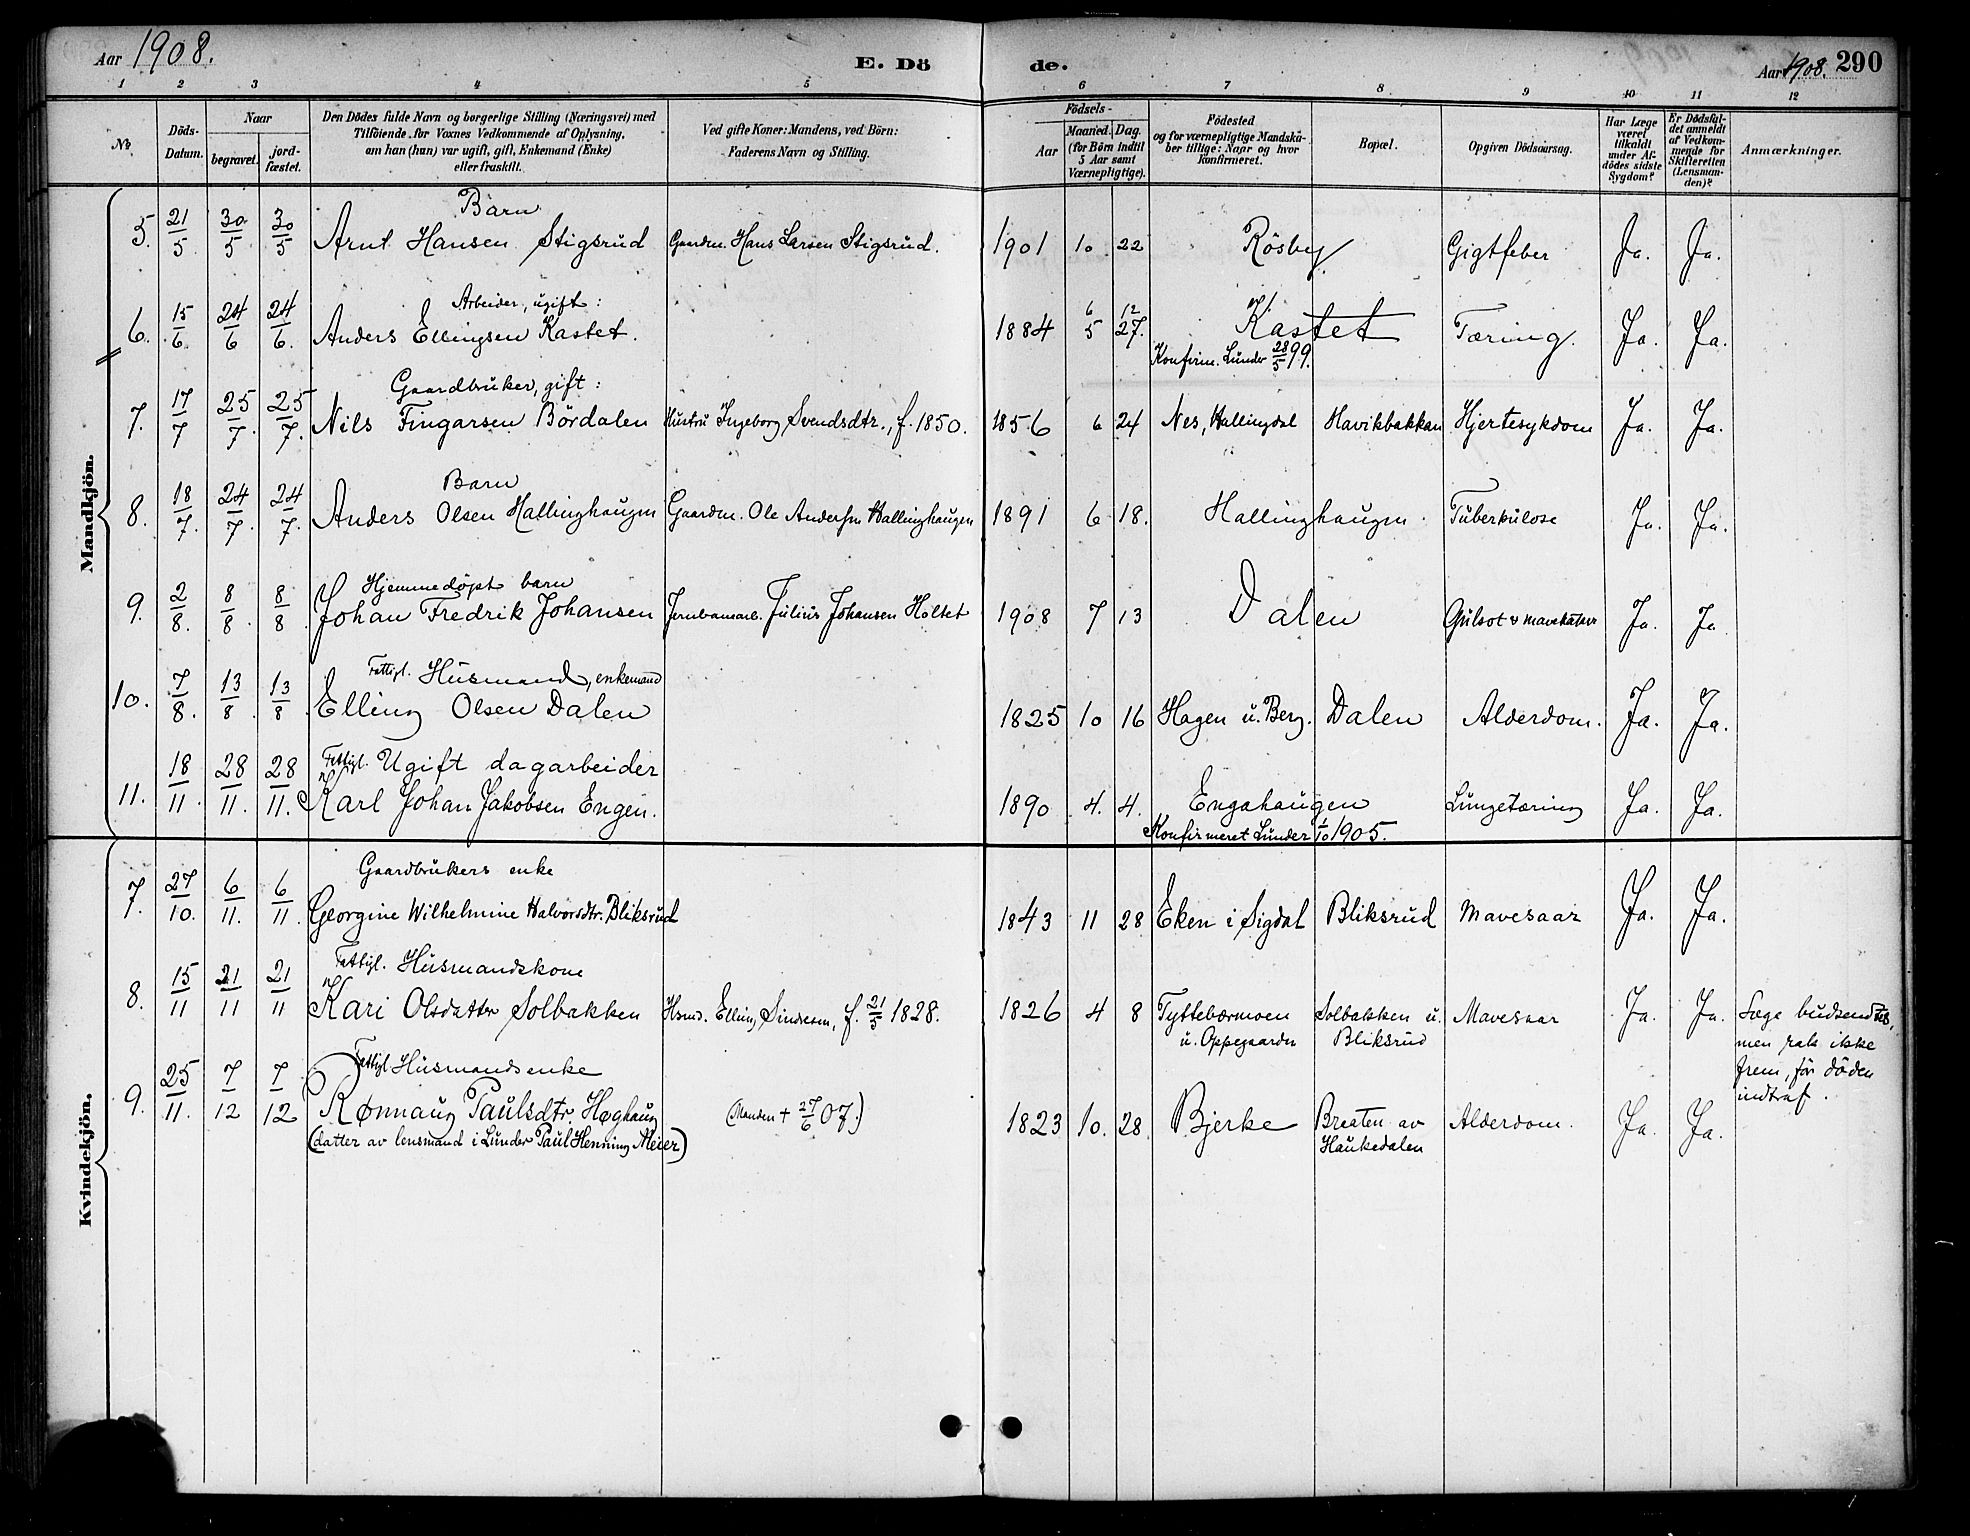 Aar 1908.
E. Dö
de.
Aar 1908. 290
1 2 3 4 5 6 7 8 9 10 11 12
№
Döds-
Datum.
Naar
begravet.
jord-
fæstet.
Den Dödes fulde Navn og borgerlige Stilling (Næringsvei) med
Tilföiende for Voxnes Vedkommende af Oplysning,
om han (hun) var ugift, gift, Enkemand (Enke)
eller fraskilt.
Ved gifte Koner: Mandens, ved Börn:
Faderens Navn og Stilling.
Födsels-
Aar
Maaned. Dag.
(for Börn indtil
5 Aar samt
Værnepligtige).
Födested
og for værnepligtige Mandska-
ber tillige: Naar og hvor
konfirmeret.
Bopæl.
Opgiven Dödsaarsag.
Har Læge
været
tilkaldt
under Af-
dödes sidste
Sygdom?
Er Dödsfal-
det anmeldt
af Vedkom-
mende for
Skifteretten
(Lensman-
den)?
Anmærkninger.
Mandkjön.
Barn
5. 21/5 30/5 30/5 Arnt Hansen Stigsrud Gaardm. Hans Larsen Stigsrud. 1901 10 22 Rösby Gigtfeber Ja. Ja.
Arbeider, ugift:
6 12
6. 15/6 24/6 24/6. Anders Ellingsen Kastet. 1884 5 27. Kastet Tæring. Ja. Ja.
Konfirm. Lunder 28/5 99.
Gaardbruker, gift:
7. 17/7 25/7. 25/7. Nils Fingarsen Bördalen Hustru Ingeborg Svendsdtr., f. 1850. 1856 6 24 Nes, Hallingdal Havikbakkan Hjertesykdom Ja. Ja.
Barn
8. 18/7. 24/7. 24/7. Anders Olsen Hallinghaugen Gaardm. Ole Andersen Hallinghaugen 1891 6 18. Hallinghaugen. Tuberkulose Ja. Ja.
Hjemmedøpt barn
9. 2/8. 8/8 8/8 Johan Fredrik Johansen Jernbanearb. Julius Johansen Holtet 1908 7 13 Dalen Gulsot & mavekatarr Ja. Ja
Fattigl. Husmand, enkemand
10. 7/8. 13/8. 13/8 Elling Olsen Dalen 1825 10 16 Hagen u. Berg. Dalen Alderdom. Ja. Ja.
Fattigl. Ugift dagarbeider
11. 18/11. 28/11. 28/11. Karl Johan Jakobsen Engen. 1890 4. 4. Engahaugen Lungetæring Ja. Ja.
Konfirmeret Lunder 1/10 1905.
Kvindekjön.
Gaardbrukers enke
7. 27/10. 6/11. 6/11. Georgine Wilhelmine Halvorsdtr. Bliksrud 1843 11 28 Eken i Sigdal Bliksrud Mavesaar Ja. Ja.
Fattigl. Husmandskone
8. 15/11 21/11 21/11 Kari Olsdatter Solbakken Husmd. Elling Sindresen, f. 21/5 1828. 1826 4 8 Tyttebærmoen Solbakken u. Mavesaar Ja. Ja. Læge budsendtes,
u. Oppegaarden Bliksrud men rak ikke
frem, før döden
indtraf.
Fattigl Husmandsenke
9. 25/11. 7/12 7/12 Rønnaug Paulsdtr. Høghaug (Manden + 27/6 07.) 1823 10. 28 Bjerke Braaten av Alderdom. Ja. Ja.
(datter av lensmand i Lunder Paul Henning Meier) Haukedalen